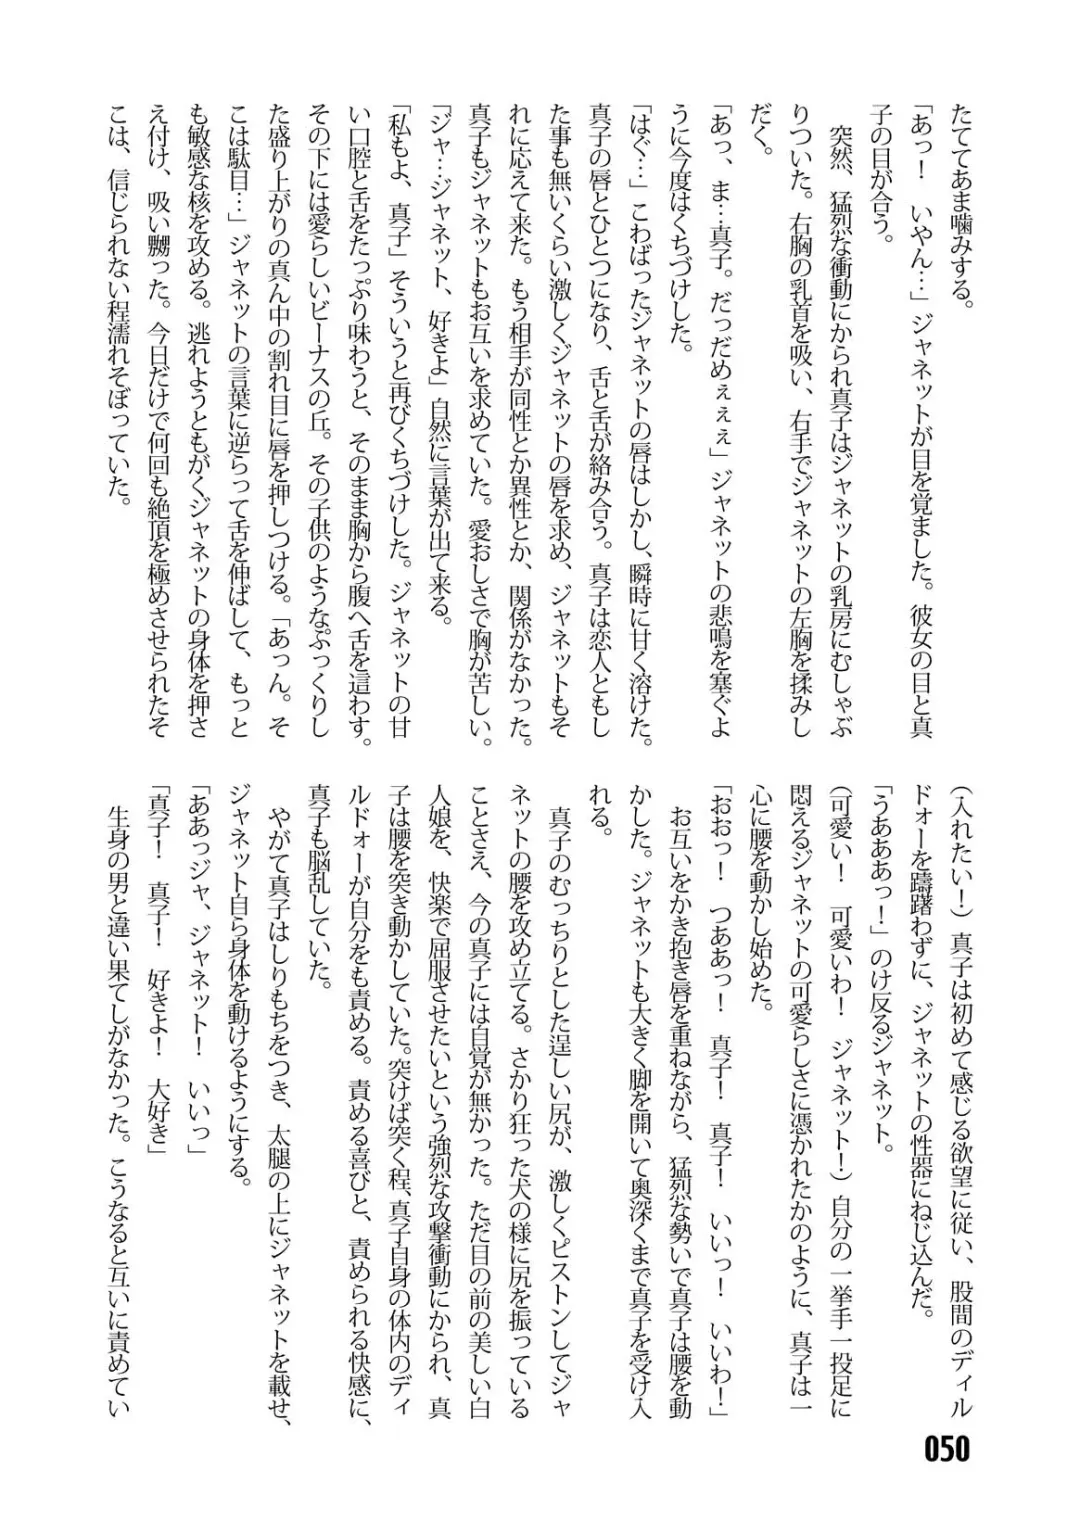 たててあま噛みする。
「あっ！　いやん…」ジャネットが目を覚ました。彼女の目と真
子の目が合う。
　突然、猛烈な衝動にかられ真子はジャネットの乳房にむしゃぶ
りついた。右胸の乳首を吸い、右手でジャネットの左胸を揉みし
だく。
「あっ、ま…真子。だっだめぇぇぇ」ジャネットの悲鳴を塞ぐよ
うに今度はくちづけした。
「はぐ…」こわばったジャネットの唇はしかし、瞬時に甘く溶けた。
真子の唇とひとつになり、舌と舌が絡み合う。真子は恋人ともし
た事も無いくらい激しくジャネットの唇を求め、ジャネットもそ
れに応えて来た。もう相手が同性とか異性とか、関係がなかった。
真子もジャネットもお互いを求めていた。愛おしさで胸が苦しい。
「ジャ…ジャネット、好きよ」自然に言葉が出て来る。
「私もよ、真子」そういうと再びくちづけした。ジャネットの甘
い口腔と舌をたっぷり味わうと、そのまま胸から腹へ舌を這わす。
その下には愛らしいビーナスの丘。その子供のようなぷっくりし
た盛り上がりの真ん中の割れ目に唇を押しつける。「あっん。そ
こは駄目…」ジャネットの言葉に逆らって舌を伸ばして、もっと
も敏感な核を攻める。逃れようともがくジャネットの身体を押さ
え付け、吸い嬲った。今日だけで何回も絶頂を極めさせられたそ
こは、信じられない程濡れそぼっていた。
（入れたい！）真子は初めて感じる欲望に従い、股間のディル
ドォーを躊躇わずに、ジャネットの性器にねじ込んだ。
「うあああっ！」のけ反るジャネット。
（可愛い！　可愛いわ！　ジャネット！）自分の一挙手一投足に
悶えるジャネットの可愛らしさに憑かれたかのように、真子は一
心に腰を動かし始めた。
「おおっ！　つああっ！　真子！　真子！　いいっ！　いいわ！」
　お互いをかき抱き唇を重ねながら、猛烈な勢いで真子は腰を動
かした。ジャネットも大きく脚を開いて奥深くまで真子を受け入
れる。
　真子のむっちりとした逞しい尻が、激しくピストンしてジャ
ネットの腰を攻め立てる。さかり狂った犬の様に尻を振っている
ことさえ、今の真子には自覚が無かった。ただ目の前の美しい白
人娘を、快楽で屈服させたいという強烈な攻撃衝動にかられ、真
子は腰を突き動かしていた。突けば突く程、真子自身の体内のディ
ルドォーが自分をも責める。責める喜びと、責められる快感に、
真子も脳乱していた。
　やがて真子はしりもちをつき、太腿の上にジャネットを載せ、
ジャネット自ら身体を動けるようにする。
「ああっジャ、ジャネット！　いいっ」
「真子！　真子！　好きよ！　大好き」
　生身の男と違い果てしがなかった。こうなると互いに責めてい
050